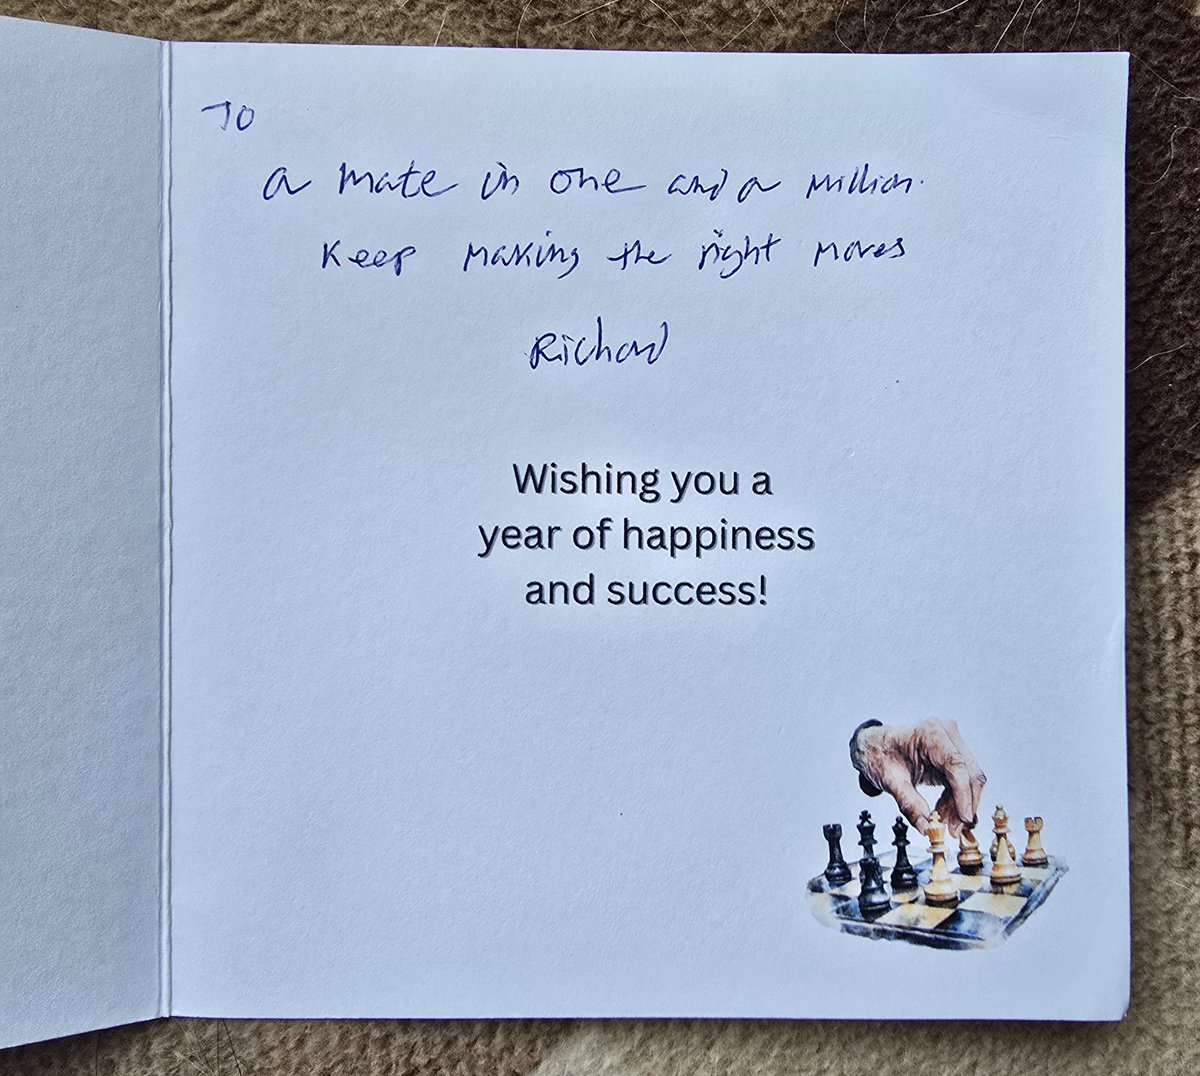 To
a mate in one and a million.
Keep making the right moves
Richard
Wishing you a
year of happiness
and success!